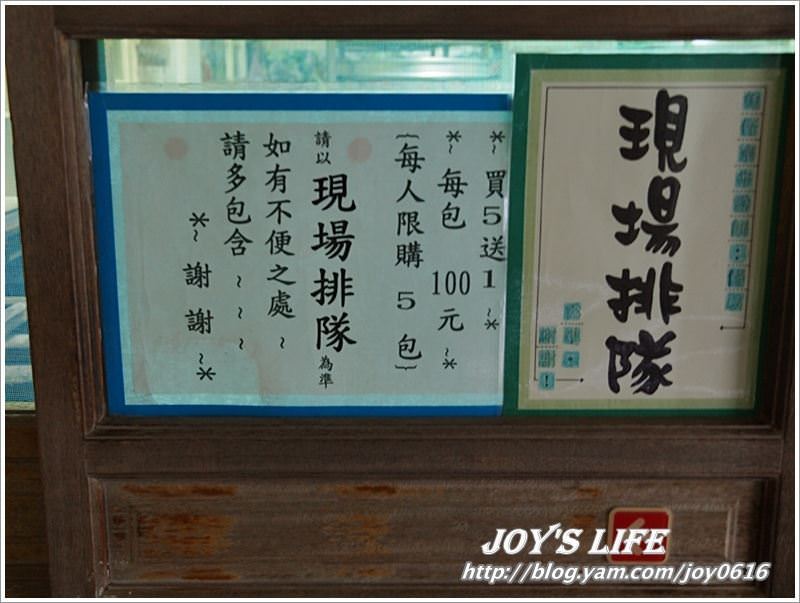 現場排隊
謝謝！
*~買5送1~*
*~每包100元~*
{每人限購5包}
請以現場排隊為準
如有不便之處~
請多包含~~~
*~謝謝~*
JOY'S LIFE
http://blog.yam.com/joy0616